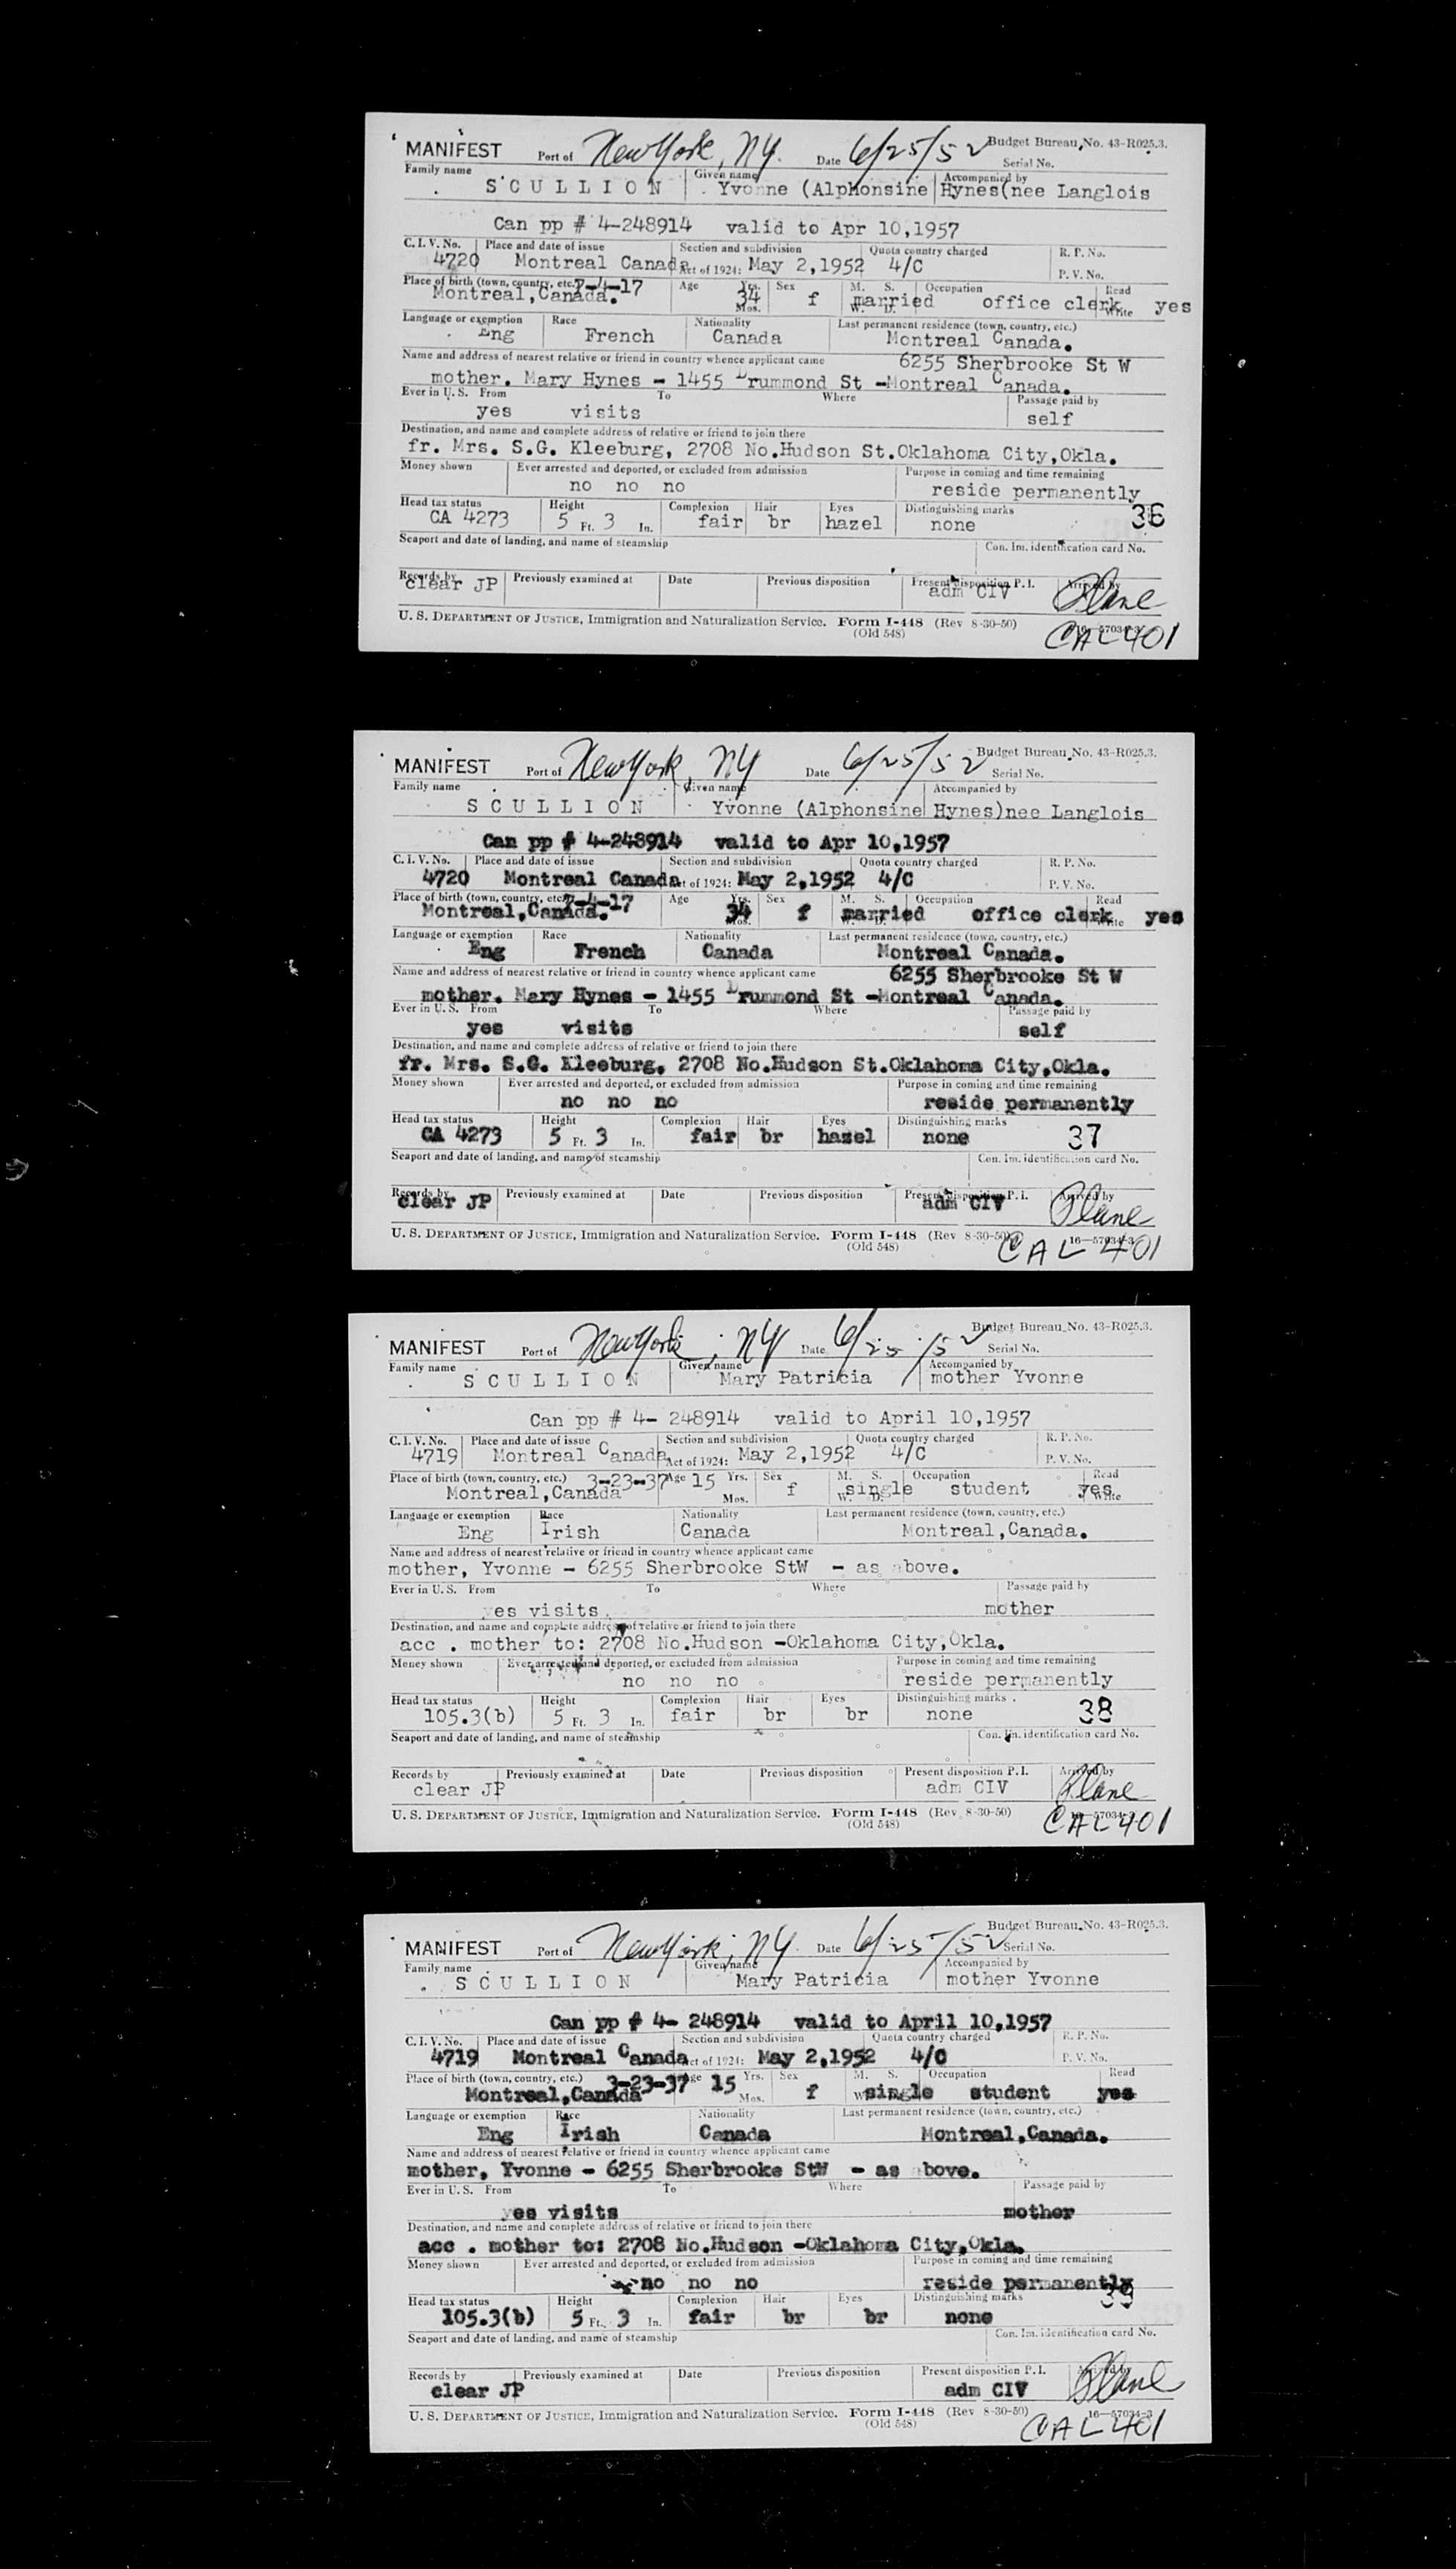 MANIFEST Port of New York, NY. Date 6/25/52 Budget Bureau No. 43-R025.3.
Serial No.
Family name Given name Accompanied by
SCULLION Yvonne (Alphonsine Hynes(nee Langlois
Can pp # 4-248914 valid to Apr 10,1957
C. I. V. No. Place and date of issue Section and subdivision Quota country charged R. P. No.
4720 Montreal Canada Act of 1924: May 2,1952 4/C
P. V. No.
Place of birth (town, country, etc.) 7-4-17 Age Yrs. Sex M. S. Occupation Read
Montreal,Canada. 34 Mos. f married W. D. office clerk Write yes
Language or exemption Race Nationality Last permanent residence (town, country, etc.)
Eng French Canada Montreal Canada.
Name and address of nearest relative or friend in country whence applicant came 6255 Sherbrooke St W
mother. Mary Hynes - 1455 Drummond St -Montreal Canada.
Ever in U. S. From To Where Passage paid by
yes visits self
Destination, and name and complete address of relative or friend to join there
fr. Mrs. S.G. Kleeburg, 2708 No.Hudson St.Oklahoma City,Okla.
Money shown Ever arrested and deported, or excluded from admission Purpose in coming and time remaining
no no no reside permanently
Head tax status Height Complexion Hair Eyes Distinguishing marks 36
CA 4273 5 Ft. 3 In. fair br hazel none
Seaport and date of landing, and name of steamship Con. Im. identification card No.
Records by Previously examined at Date Previous disposition Present disposition P. I. Arrived by
clear JP adm CIV Plane
U. S. DEPARTMENT OF JUSTICE, Immigration and Naturalization Service. Form I-448 (Rev 8-30-50)
(Old 548) CAL 401
MANIFEST Port of New York, NY Date 6/25/52 Budget Bureau No. 43-R025.3.
Serial No.
Family name Given name Accompanied by
SCULLION Yvonne (Alphonsine Hynes)nee Langlois
Can pp # 4-248914 valid to Apr 10,1957
C. I. V. No. Place and date of issue Section and subdivision Quota country charged R. P. No.
4720 Montreal Canada Act of 1924: May 2,1952 4/C
P. V. No.
Place of birth (town, country, etc.) 7-4-17 Age Yrs. Sex M. S. Occupation Read
Montreal,Canada. 34 Mos. f married office clerk Write yes
Language or exemption Race Nationality Last permanent residence (town, country, etc.)
Eng French Canada Montreal Canada.
Name and address of nearest relative or friend in country whence applicant came 6255 Sherbrooke St W
mother. Mary Hynes - 1455 Drummond St -Montreal Canada.
Ever in U. S. From To Where Passage paid by
yes visits self
Destination, and name and complete address of relative or friend to join there
fr. Mrs. S.G. Kleeburg, 2708 No.Hudson St.Oklahoma City,Okla.
Money shown Ever arrested and deported, or excluded from admission Purpose in coming and time remaining
no no no reside permanently
Head tax status Height Complexion Hair Eyes Distinguishing marks
CA 4273 5 Ft. 3 In. fair br hazel none 37
Seaport and date of landing, and name of steamship Con. Im. identification card No.
Records by Previously examined at Date Previous disposition Present disposition P. I. Arrived by
clear JP adm CIV Plane
U. S. DEPARTMENT OF JUSTICE, Immigration and Naturalization Service. Form I-448 (Rev 8-30-50) 16—57034-3
(Old 548) CAL 401
MANIFEST Port of New York, NY Date 6/25/52 Budget Bureau No. 43-R025.3.
Serial No.
Family name Given name Accompanied by
SCULLION Mary Patricia mother Yvonne
Can pp # 4- 248914 valid to April 10,1957
C. I. V. No. Place and date of issue Section and subdivision Quota country charged R. P. No.
4719 Montreal Canada Act of 1924: May 2,1952 4/C
P. V. No.
Place of birth (town, country, etc.) 3-23-37 Age 15 Yrs. Sex M. S. Occupation Read
Montreal,Canada Mos. f single W. D. student yes Write
Language or exemption Race Nationality Last permanent residence (town, country, etc.)
Eng Irish Canada Montreal,Canada.
Name and address of nearest relative or friend in country whence applicant came
mother, Yvonne - 6255 Sherbrooke StW - as above.
Ever in U. S. From To Where Passage paid by
yes visits mother
Destination, and name and complete address of relative or friend to join there
acc . mother to: 2708 No.Hudson -Oklahoma City,Okla.
Money shown Ever arrested and deported, or excluded from admission Purpose in coming and time remaining
no no no reside permanently
Head tax status Height Complexion Hair Eyes Distinguishing marks
105.3(b) 5 Ft. 3 In. fair br br none 38
Seaport and date of landing, and name of steamship Con. Im. identification card No.
Records by Previously examined at Date Previous disposition Present disposition P. I. Arrived by
clear JP adm CIV Plane
U. S. DEPARTMENT OF JUSTICE, Immigration and Naturalization Service. Form I-448 (Rev 8-30-50)
(Old 548) CAL 401
MANIFEST Port of New York, NY. Date 6/25/52 Budget Bureau No. 43-R025.3.
Serial No.
Family name Given name Accompanied by
SCULLION Mary Patricia mother Yvonne
Can pp # 4- 248914 valid to April 10,1957
C. I. V. No. Place and date of issue Section and subdivision Quota country charged R. P. No.
4719 Montreal Canada Act of 1924: May 2,1952 4/C P. V. No.
Place of birth (town, country, etc.) 3-23-37 Age 15 Yrs. Sex M. S. Occupation Read
Montreal,Canada Mos. f W single student yes
Language or exemption Race Nationality Last permanent residence (town, country, etc.)
Eng Irish Canada Montreal,Canada.
Name and address of nearest relative or friend in country whence applicant came
mother, Yvonne - 6255 Sherbrooke StW - as above.
Ever in U. S. From To Where Passage paid by
yes visits mother
Destination, and name and complete address of relative or friend to join there
acc . mother to: 2708 No.Hudson -Oklahoma City,Okla.
Money shown Ever arrested and deported, or excluded from admission Purpose in coming and time remaining
no no no reside permanently
39
Head tax status Height Complexion Hair Eyes Distinguishing marks
105.3(b) 5 Ft. 3 In. fair br br none
Seaport and date of landing, and name of steamship Con. Im. identification card No.
Records by Previously examined at Date Previous disposition Present disposition P. I. Arrived by
clear JP adm CIV Plane
U. S. DEPARTMENT OF JUSTICE, Immigration and Naturalization Service. Form I-448 (Rev 8-30-50) 16—57034-3
(Old 548) CAL 401